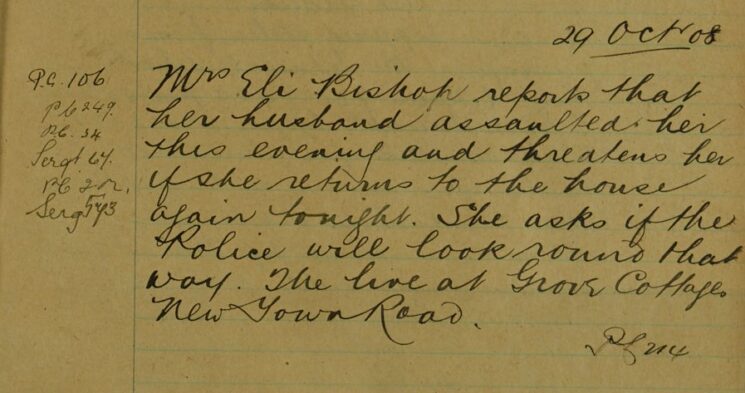 29 Oct 08
P.C. 106
Mrs Eli Bishop reports that
Pc 249.
her husband assaulted her
Pc. 34
this evening and threatens her
Sergt 64.
if she returns to the house
Pc
Sergt
again tonight. She asks if the
Police will look round that
way. The live at Grove Cottages
New Town Road.
PC